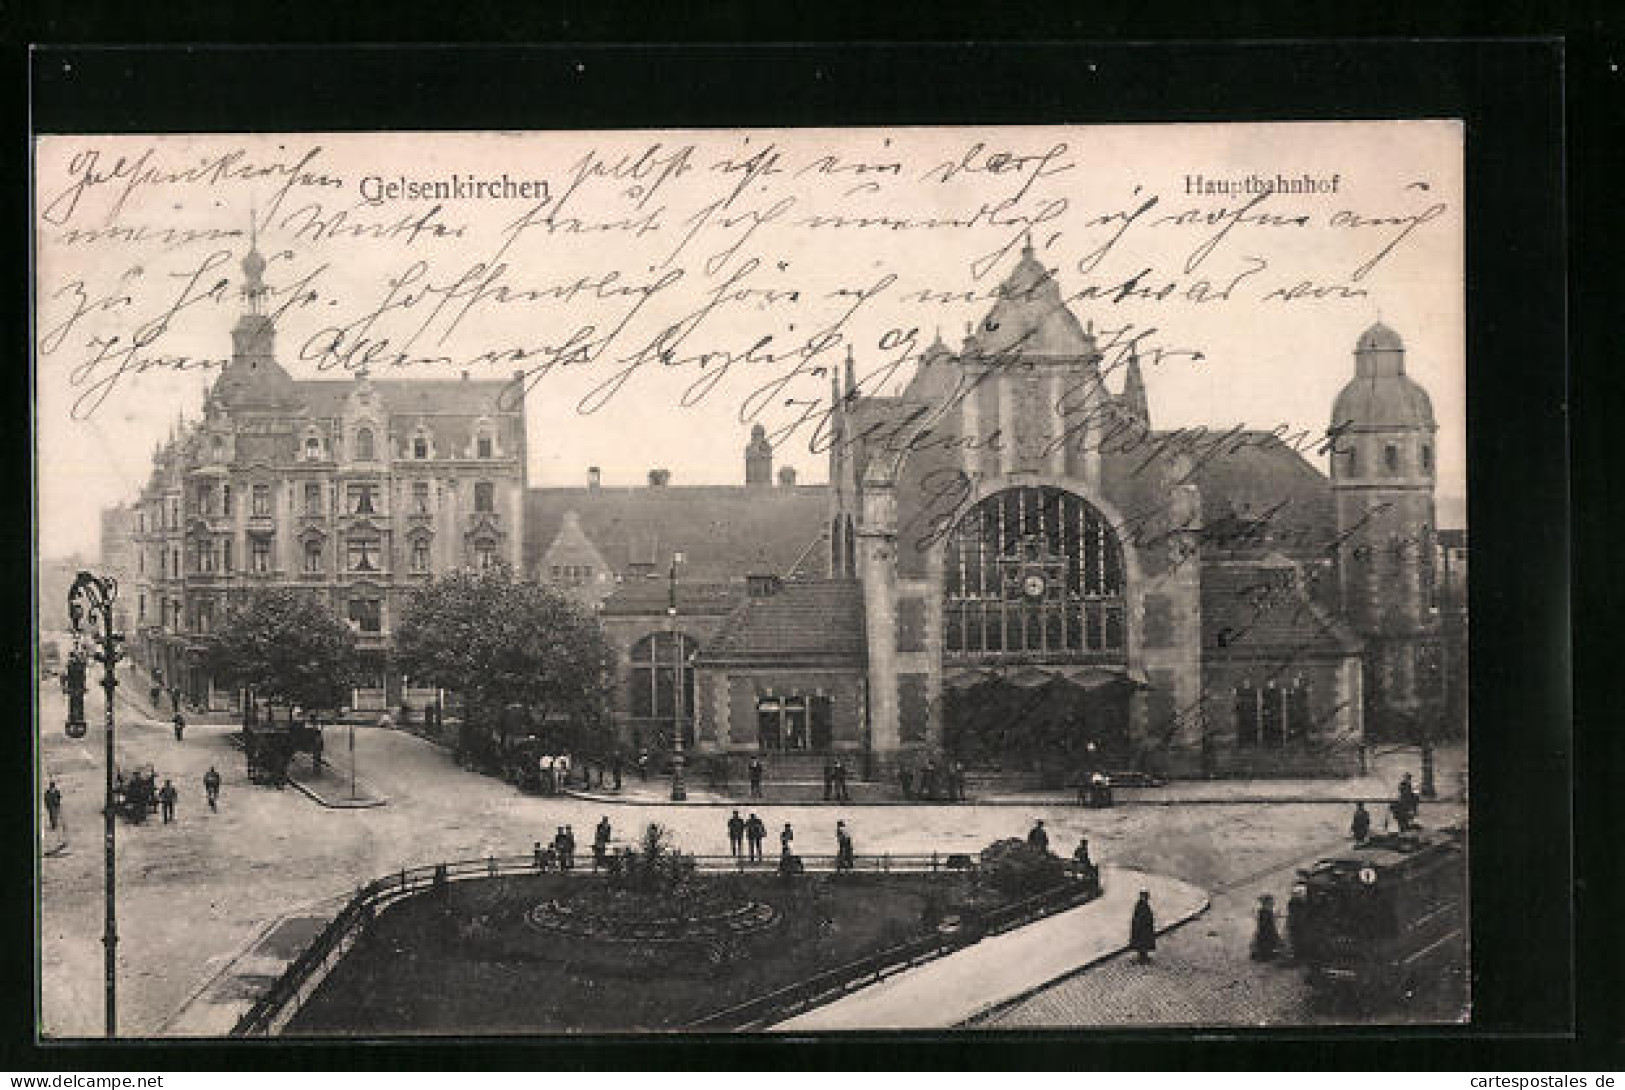 Gelsenkirchen
Hauptbahnhof
Gelsenkirchen selbst ist ein Dorf
meine Mutter freut sich unendlich, ich wohne auch
zu Hause. Hoffentlich höre ich mal etwas von
Ihnen Allen recht herzliche Grüße Ihre
Helene
1
cartespostales.de
www.cartespostales.de